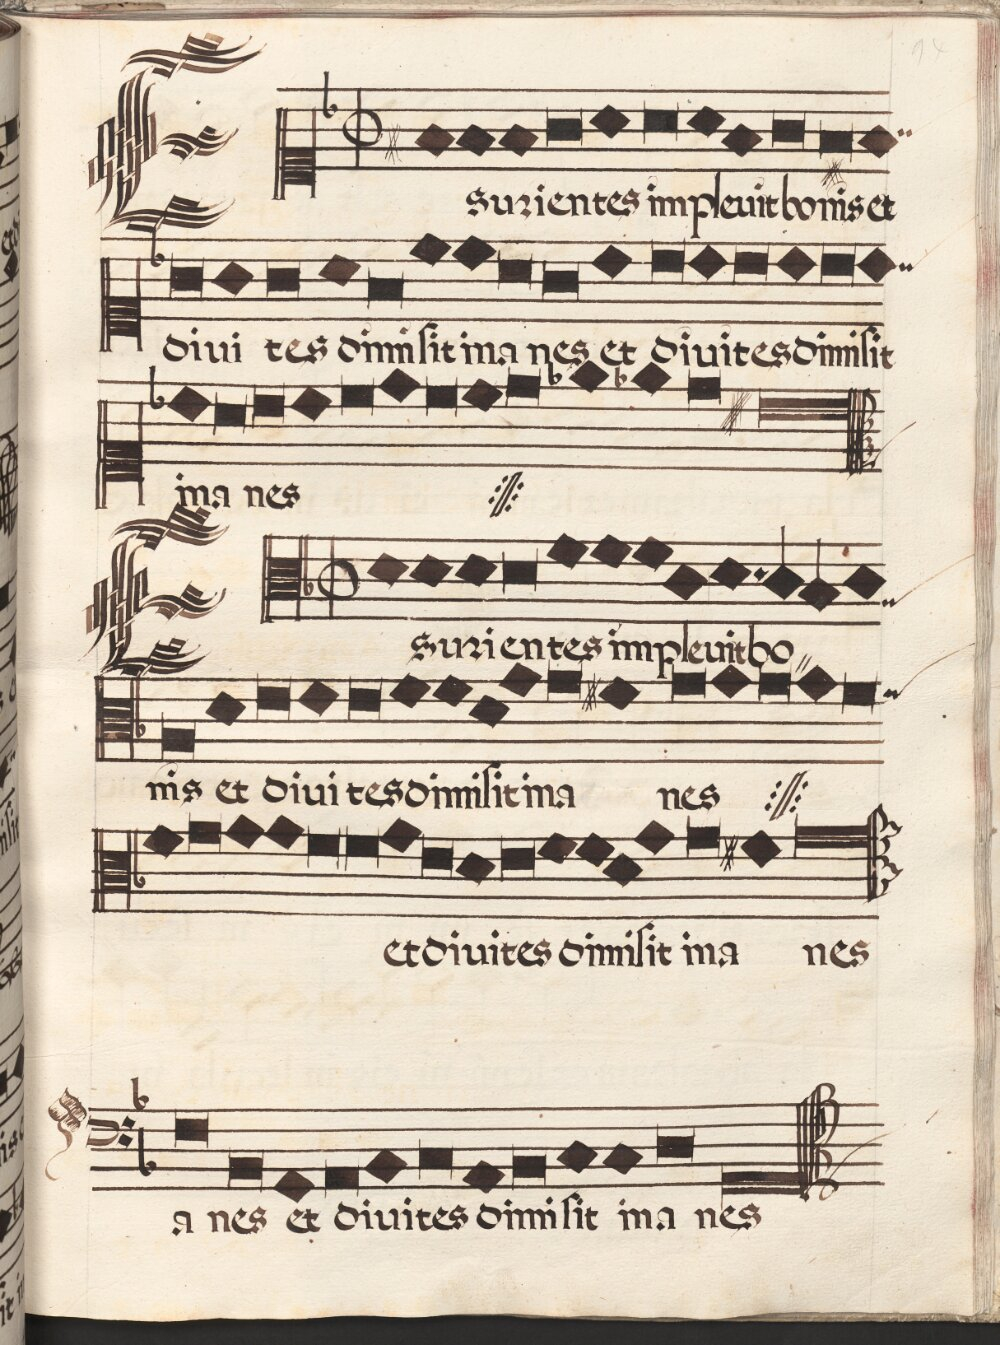 Esurientes impleuit bonis et
diui tes dimisit ina nes et diuites dimisit
ina nes
Esurientes impleuit bo
nis et diui tes dimisit ina nes
et diuites dimisit ina nes
a nes et diuites dimisit ina nes